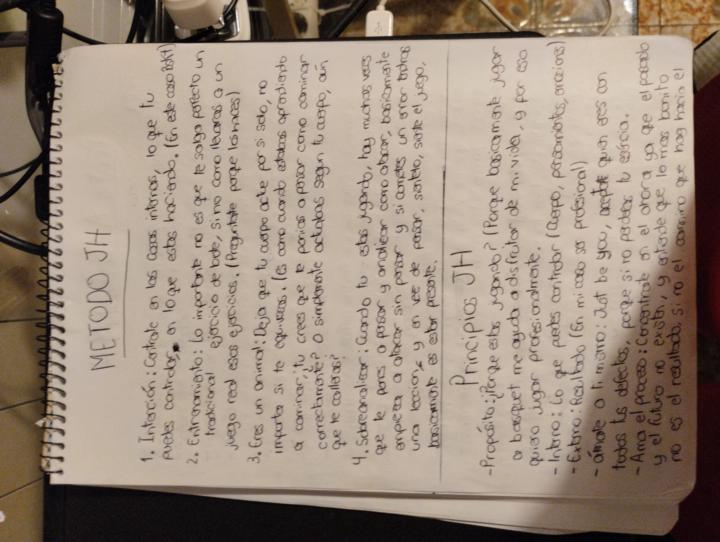 METODO JH
1. Intención: Centrate en las cosas internas, lo que tu
puedes controlar, en lo que estas haciendo. (En este caso
2. Entrenamiento: Lo importante no es que te salga perfecto un
tradicional ejercicio de bote, si no como llevaras a un
juego real esos ejercicios. (Preguntate porque los haces)
3. Eres un animal: Deja que tu cuerpo actue por si solo, no
importa si te equivocas. (Es como cuando estabas aprendiendo
a caminar, tu crees que te ponias a pensar como caminar
correctamente? O simplemente actuabas segun tu cuerpo, aún
que te calleras?
4. Sobreanalizar: Cuando tu estas jugando, hay muchas veces
que te pones a pensar y analizar como atacar, basicamente
empieza a atacar sin pensar y si cometes un error tendras
una leccion, y en vez de pensar, sientelo, siente el juego,
basicamente es estar presente.
Principios JH
- Propósito: ¿Porque estas jugando? (Porque basicamente jugar
a basquet me ayuda a disfrutar de mi vida, y por eso
quiero jugar profesionalmente.
- Interno: Lo que puedes controlar (Cuerpo, pensamientos, emociones)
- Externo: Resultado (En mi caso ser profesional)
- ámate a ti mismo: Just be you, acepta quien eres con
todos tus defectos, porque si no perderas tu esencia.
- Ama el proceso: Concentrate en el ahora ya que el pasado
y el futuro no existen, y entiende que lo mas bonito
no es el resultado, si no el camino que hay hacia el